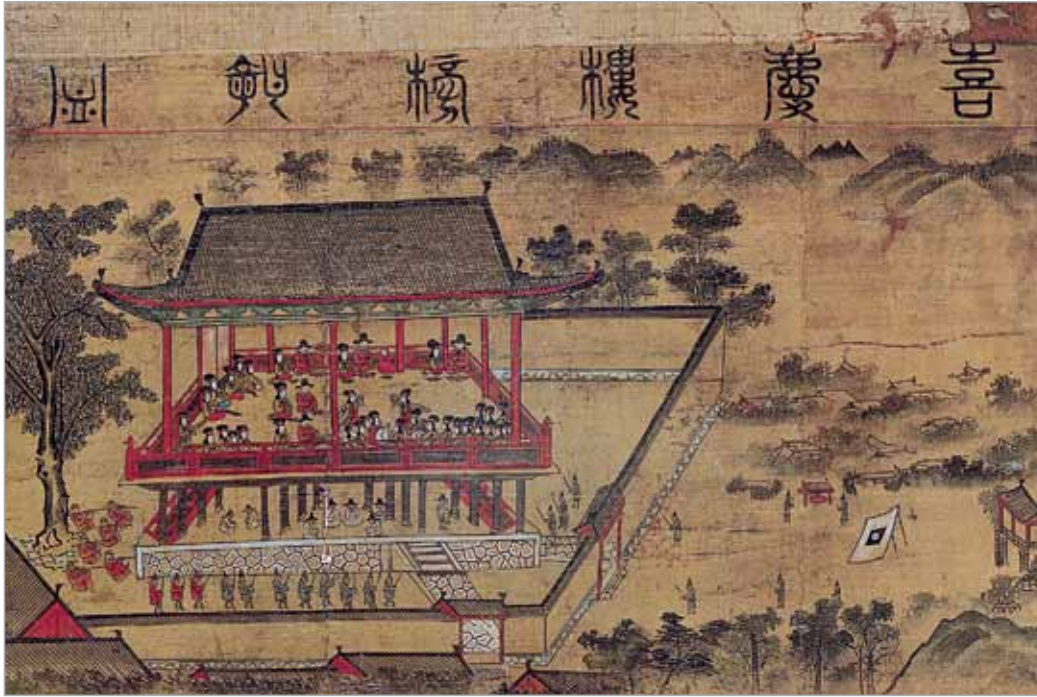 喜慶樓榜會圖